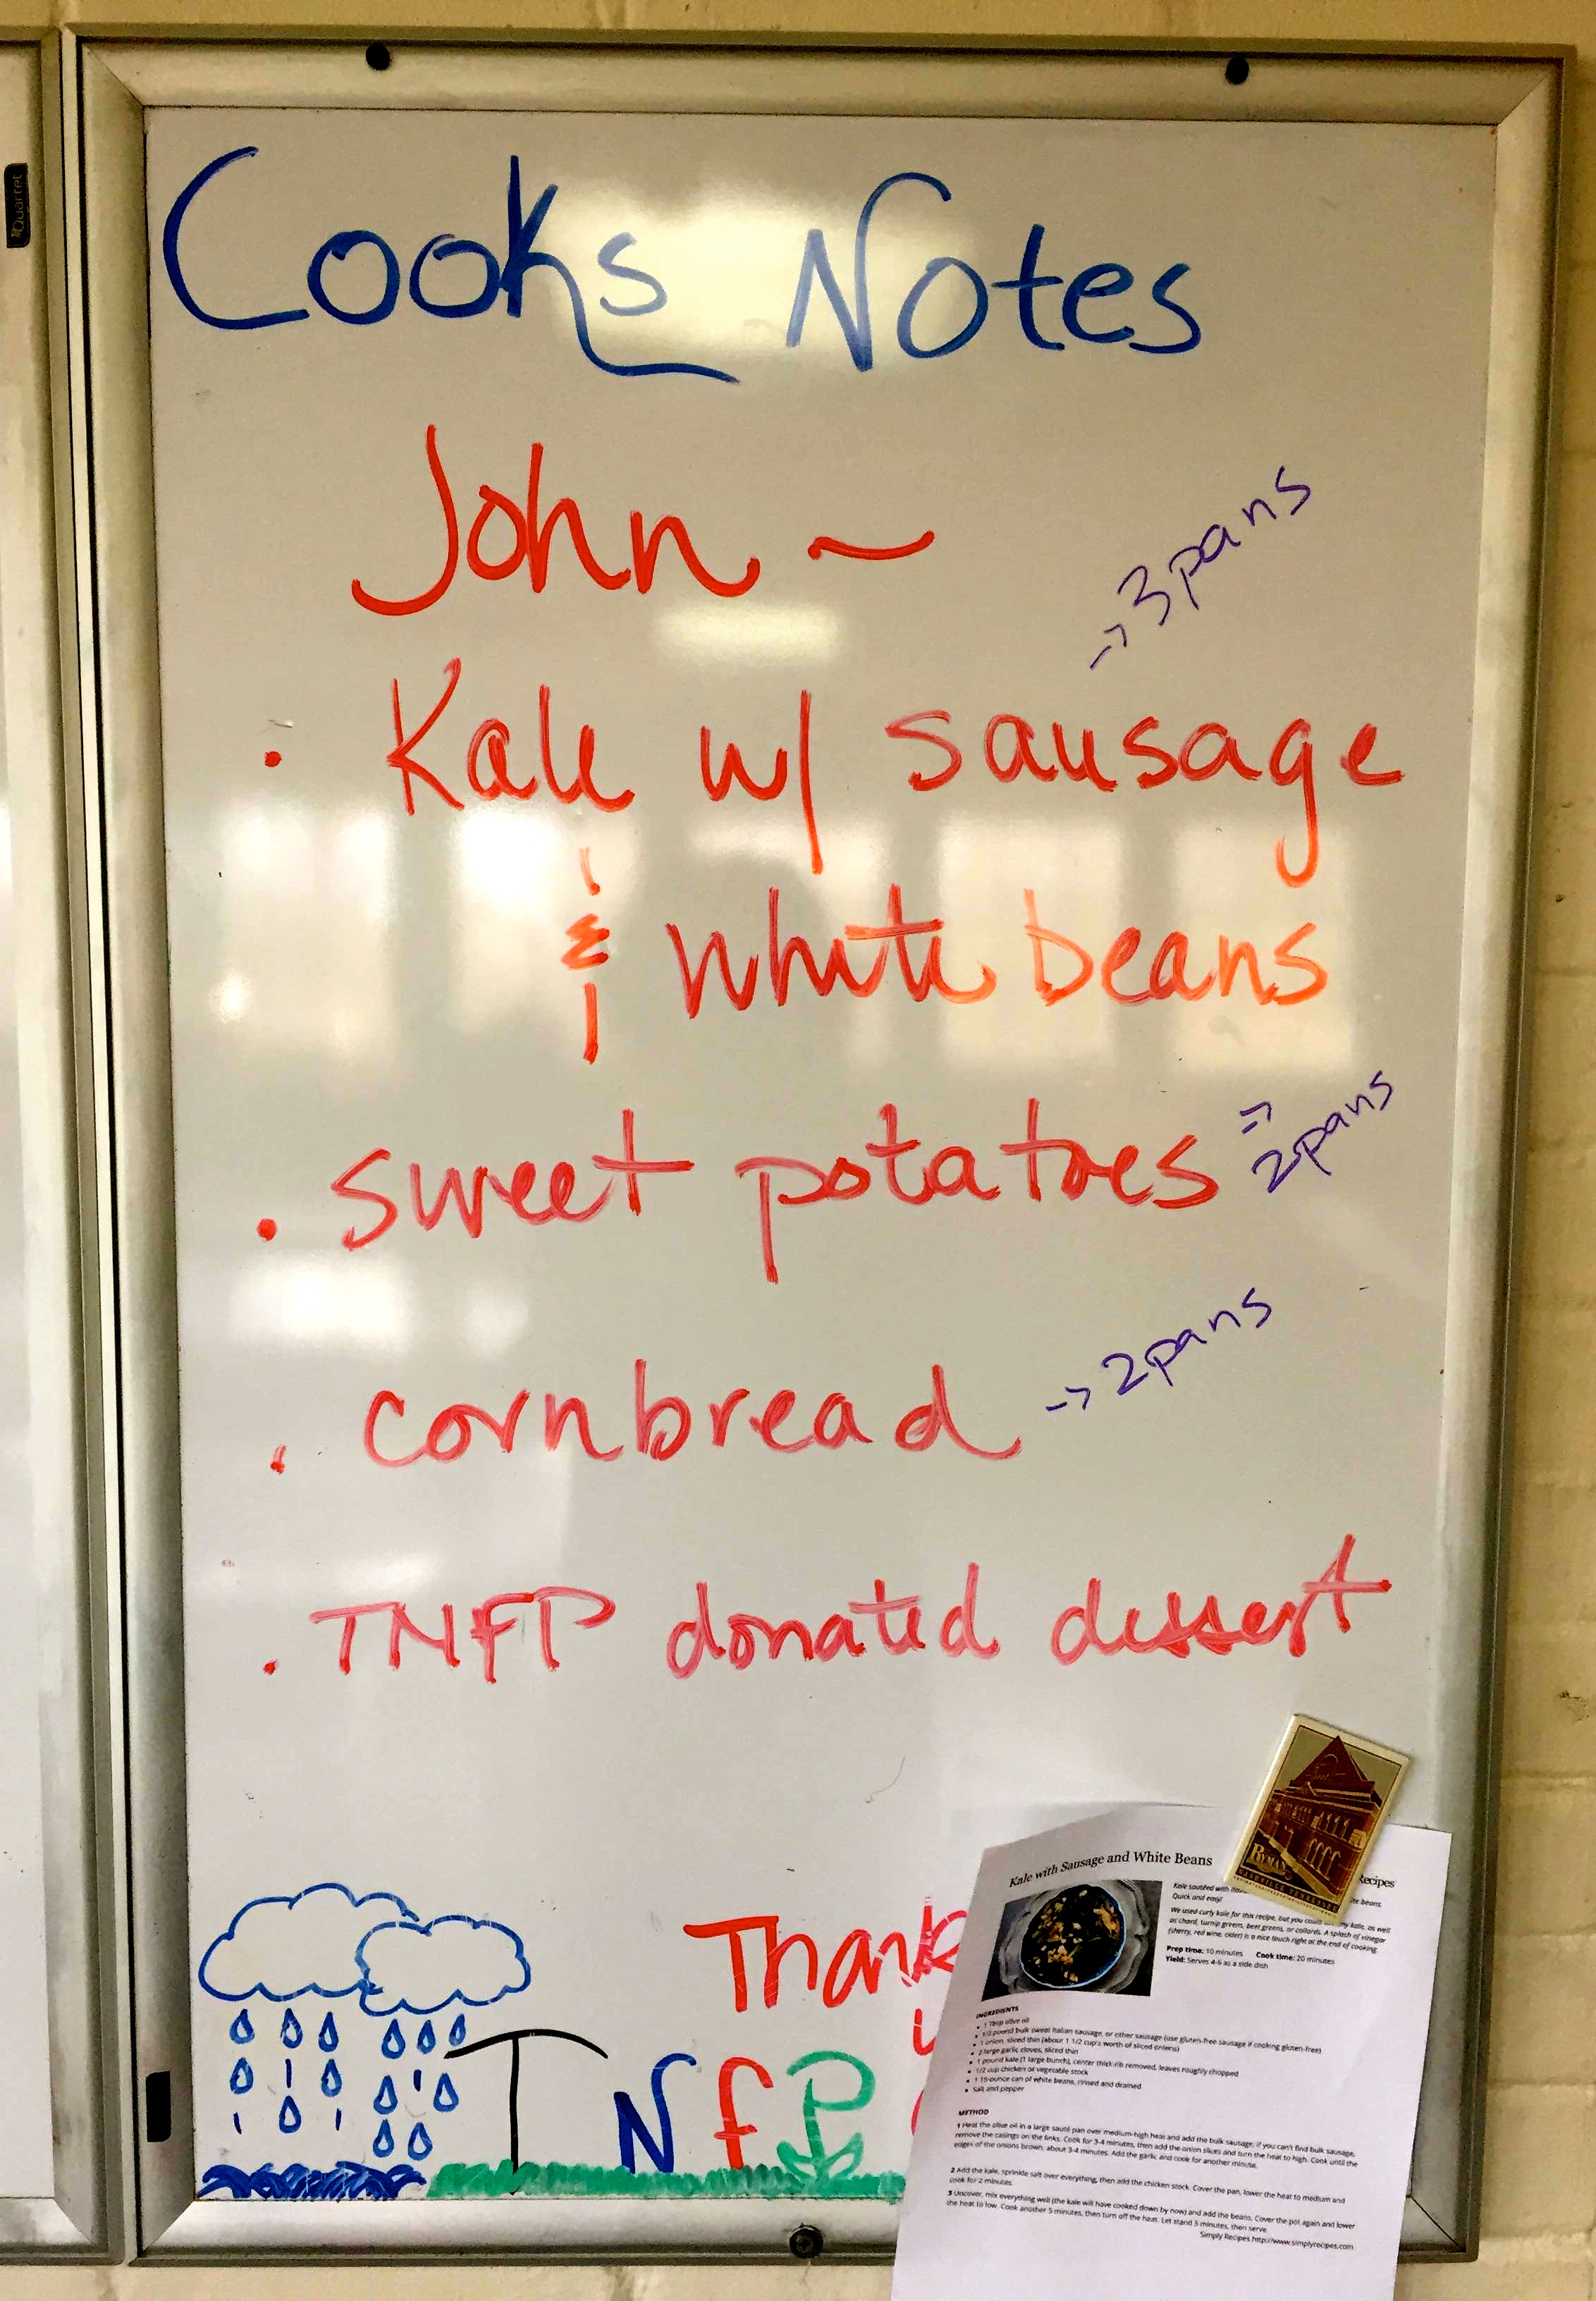 Quartet
Cooks Notes
John ~
→ 3 pans
• Kale w/ sausage
& white beans
• sweet potatoes → 2 pans
• cornbread → 2 pans
• TNFP donated dessert
Thank
TNFP
RYMAN
NASHVILLE TENNESSEE
Kale with Sausage and White Beans
Recipes
Kale sautéed with beans.
Quick and easy!
We used curly kale for this recipe, but you could kale, as well
as chard, turnip greens, beet greens, or collards. A splash of vinegar
(sherry, red wine, cider) is a nice touch right at the end of cooking.
Prep time: 10 minutes Cook time: 20 minutes
Yield: Serves 4-6 as a side dish
INGREDIENTS
• 1 Tbsp olive oil
• 1/2 pound bulk sweet Italian sausage, or other sausage (use gluten-free sausage if cooking gluten-free)
• 1 onion, sliced thin (about 1 1/2 cup's worth of sliced onions)
• 2 large garlic cloves, sliced thin
• 1 pound kale (1 large bunch), center thick rib removed, leaves roughly chopped
• 1/2 cup chicken or vegetable stock
• 1 15-ounce can of white beans, rinsed and drained
• Salt and pepper
METHOD
1 Heat the olive oil in a large sauté pan over medium-high heat and add the bulk sausage, if you can't find bulk sausage,
remove the casings on the links. Cook for 3-4 minutes, then add the onion slices and turn the heat to high. Cook until the
edges of the onions brown, about 3-4 minutes. Add the garlic and cook for another minute.
2 Add the kale, sprinkle salt over everything, then add the chicken stock. Cover the pan, lower the heat to medium and
cook for 2 minutes.
3 Uncover, mix everything well (the kale will have cooked down by now) and add the beans. Cover the pot again and lower
the heat to low. Cook another 5 minutes, then turn off the heat. Let stand 5 minutes, then serve.
Simply Recipes http://www.simplyrecipes.com